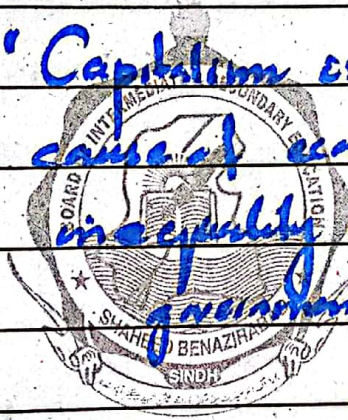 " Capitalism es
cause of eco
inequality
governmen
BOARD INTERMEDIATE SECONDARY EDUCATION
SHAHEED BENAZIRAB
SINDH